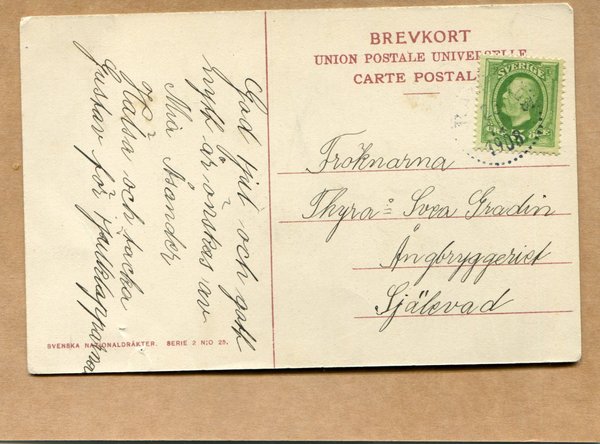 BREVKORT
UNION POSTALE UNIVERSELLE
CARTE POSTALE
SVERIGE
1908
God Jjul och gott
nytt år önskas av
Mia Åsander
Hälsa och tacka
Gustav för julklapparna
Fröknarna
Thyra o Svea Gradin
Ångbryggeriet
Själevad
SVENSKA NATIONALDRÄKTER. SERIE 2 N:O 25.